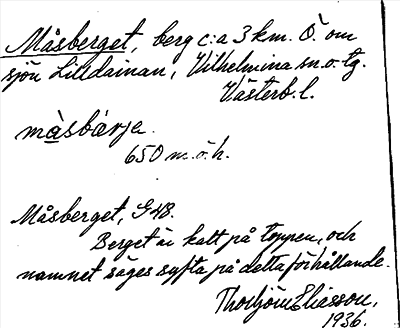 Måsberget, berg c:a 3 km. Ö. om
sjön Lilldainan, Vilhelmina sn. o. tg.
Västerb. l.
måsbärja.
650 m. ö. h.
Måsberget, G48.
Berget är kalt på toppen, och
namnet säges syfta på detta förhållande.
Thorbjörn Eliasson,
1936.